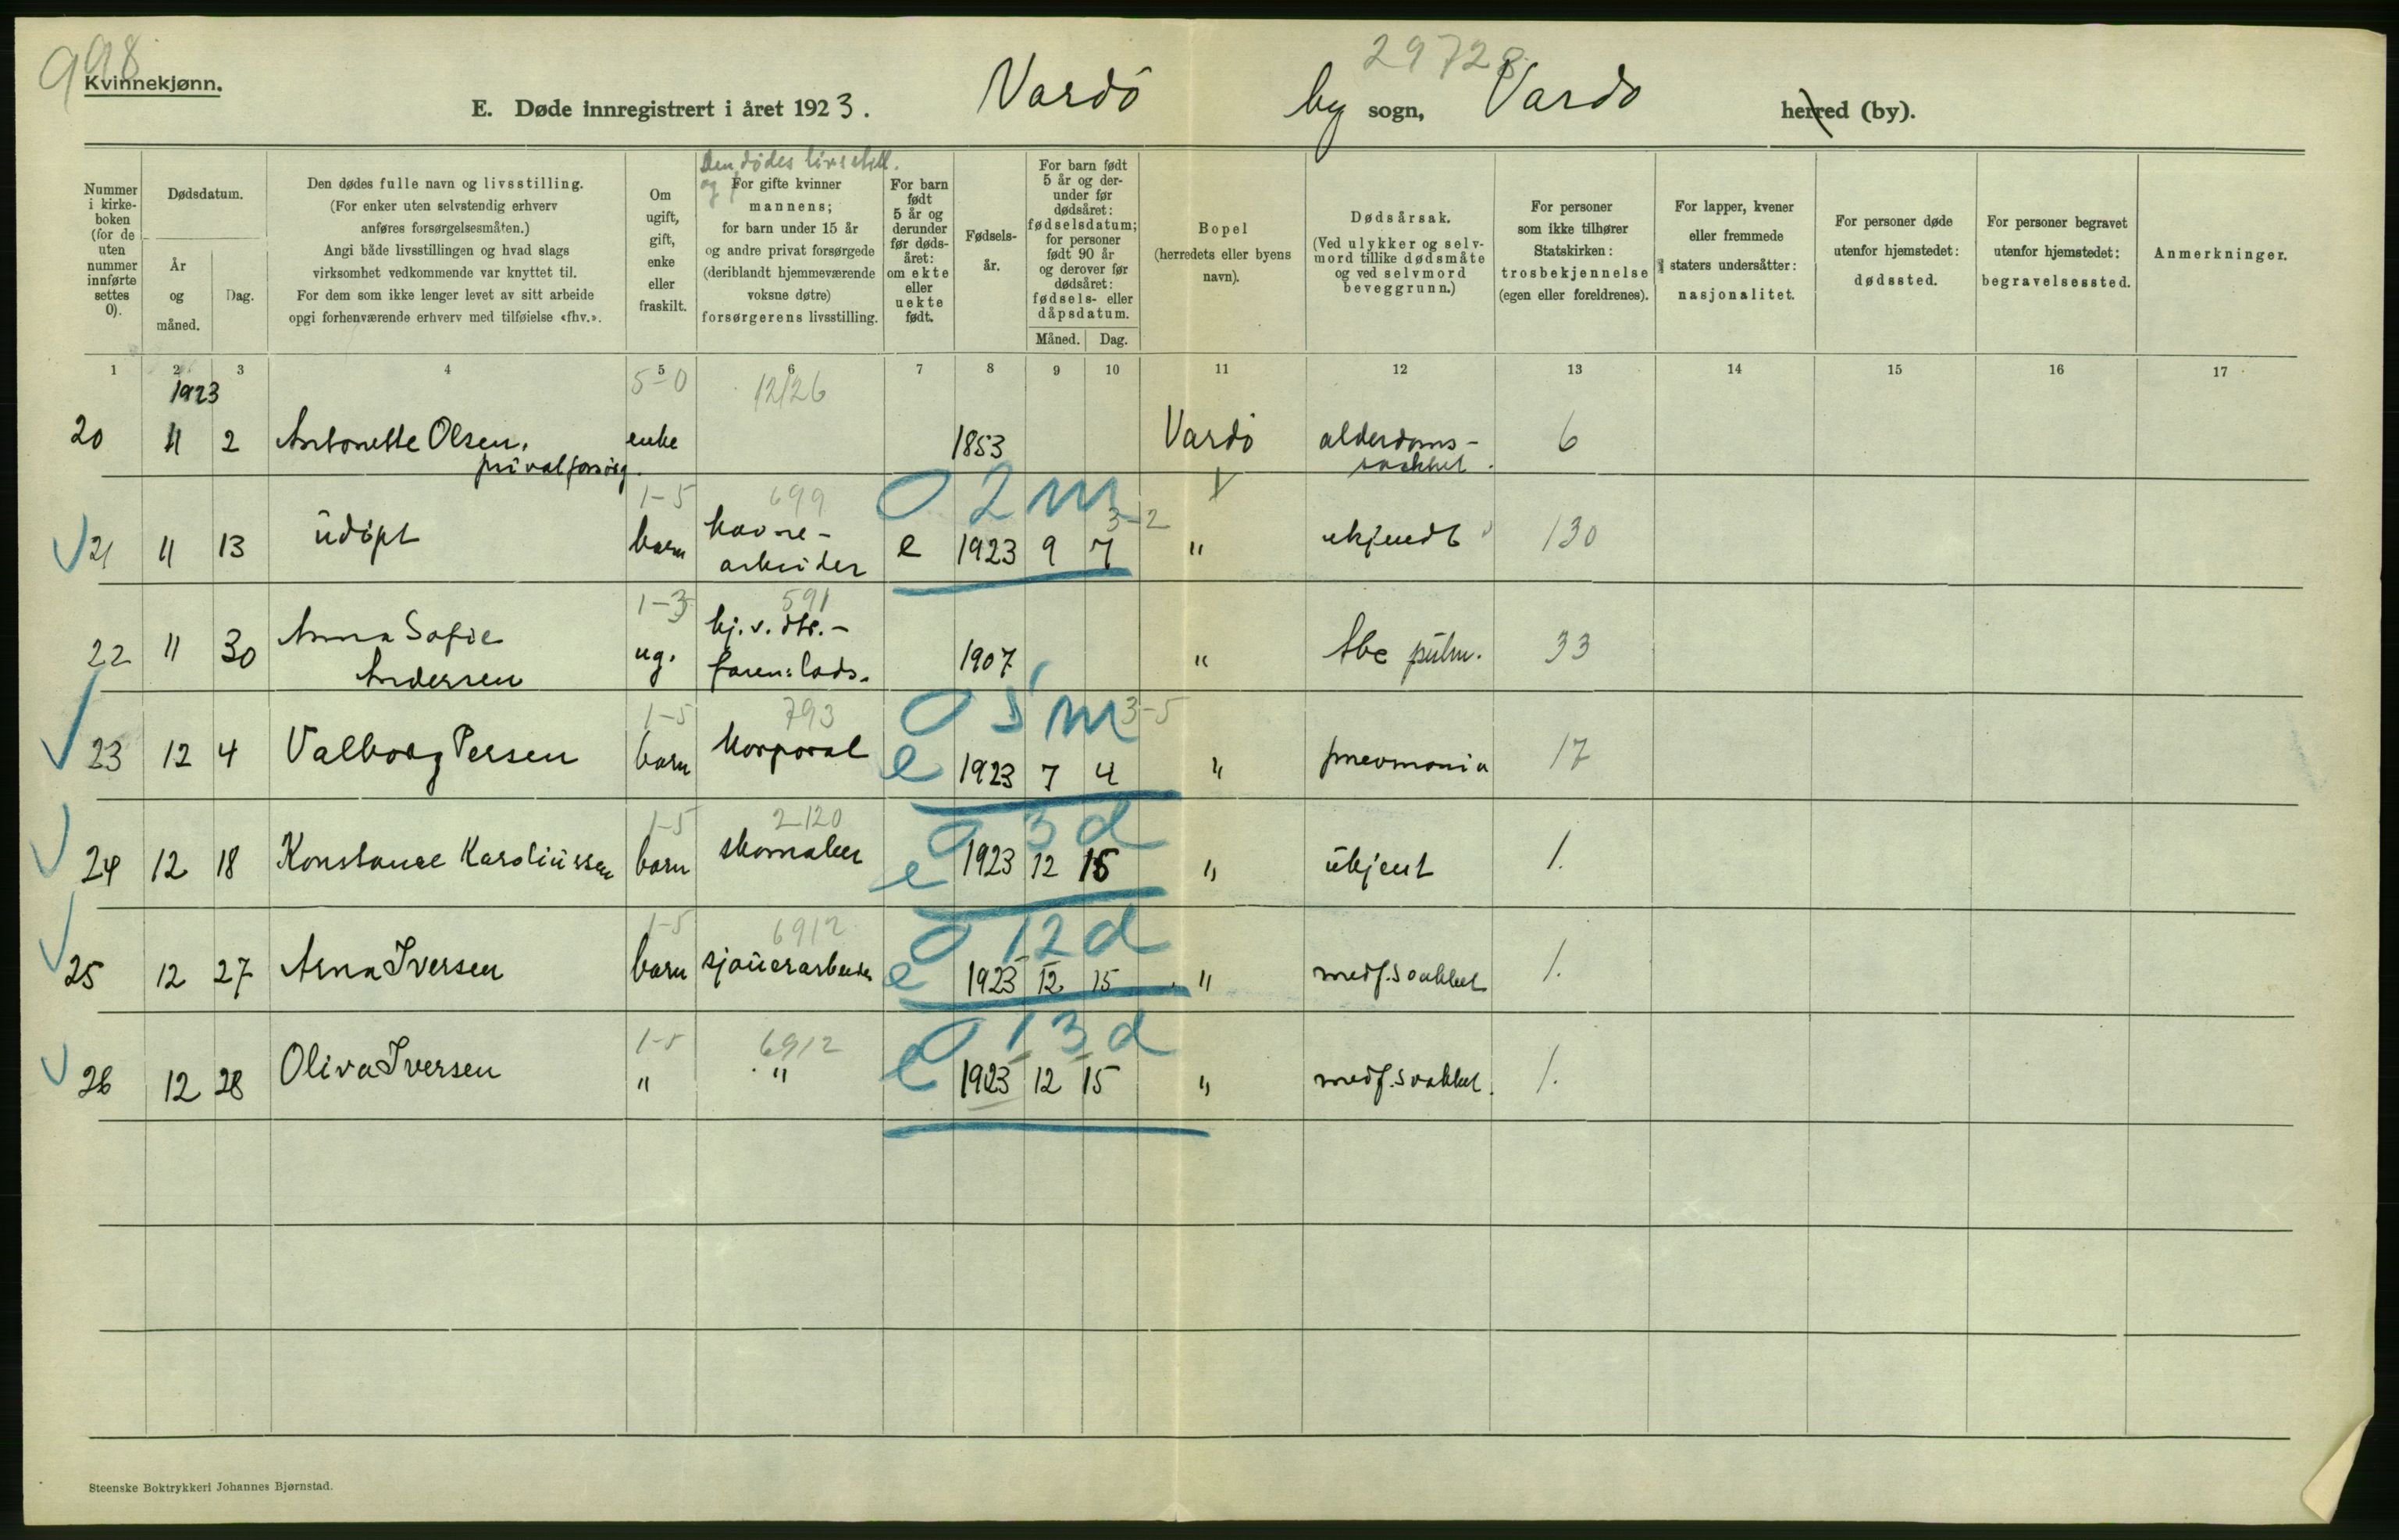 998
29728
Kvinnekjønn.
E. Døde innregistrert i året 1923. Vardö by sogn, Vardö herred (by).
Nummer
i kirke-
boken
(for de
uten
nummer
innførte
settes
0).
Dødsdatum.
År
og
måned.
Dag.
Den dødes fulle navn og livsstilling.
(For enker uten selvstendig erhverv
anføres forsørgelsesmåten.)
Angi både livsstillingen og hvad slags
virksomhet vedkommende var knyttet til.
For dem som ikke lenger levet av sitt arbeide
opgi forhenværende erhverv med tilføielse «fhv.».
Om
ugift,
gift,
enke
eller
fraskilt.
Den dödes livsstill.
og
For gifte kvinner
mannens;
for barn under 15 år
og andre privat forsørgede
(deriblandt hjemmeværende
voksne døtre)
forsørgerens livsstilling.
For barn
født
5 år og
derunder
før døds-
året:
om ekte
eller
uekte
født.
Fødsels-
år.
For barn født
5 år og der-
under før
dødsåret:
fødselsdatum;
for personer
født 90 år
og derover før
dødsåret:
fødsels- eller
dåpsdatum.
Måned. Dag.
Bopel
(herredets eller byens
navn).
Dødsårsak.
(Ved ulykker og selv-
mord tillike dødsmåte
og ved selvmord
beveggrunn.)
For personer
som ikke tilhører
Statskirken:
trosbekjennelse
(egen eller foreldrenes).
For lapper, kvener
eller fremmede
staters undersåtter:
nasjonalitet.
For personer døde
utenfor hjemstedet:
dødssted.
For personer begravet
utenfor hjemstedet:
begravelsessted.
Anmerkninger.
1 2 3 4 5 6 7 8 9 10 11 12 13 14 15 16 17
1923 5-0 12/26
20 11 2 Antonette Olsen, enke 1853 Vardö alderdoms- 6
privat forsörg. svakhet.
1-5 699 0 2 m 3-2
21 11 13 üdöpt barn havne- e 1923 9 7 " ukjendt 130
arbeider
1-3 591
22 11 30 Anna Sofie ug. hj.v. dtr.- 1907 " tbc pulm. 33
Andersen faren: lods.
1-5 793 0 5 m 3-5
23 12 4 Valborg Persen barn korporal e 1923 7 4 " pneomonia 17
1-5 2120 0 3 d
24 12 18 Konstance Karoliüssen barn skomaker e 1923 12 15 " ükjent 1.
1-5 6912 0 12 d
25 12 27 Arna Iversen barn sjaüerarbeider e 1923 12 15 " medf. svakhet 1.
1-5 6912 0 13 d
26 12 28 Oliva Iversen " " e 1923 12 15 " medf. svakhet. 1.
Steenske Boktrykkeri Johannes Bjørnstad.